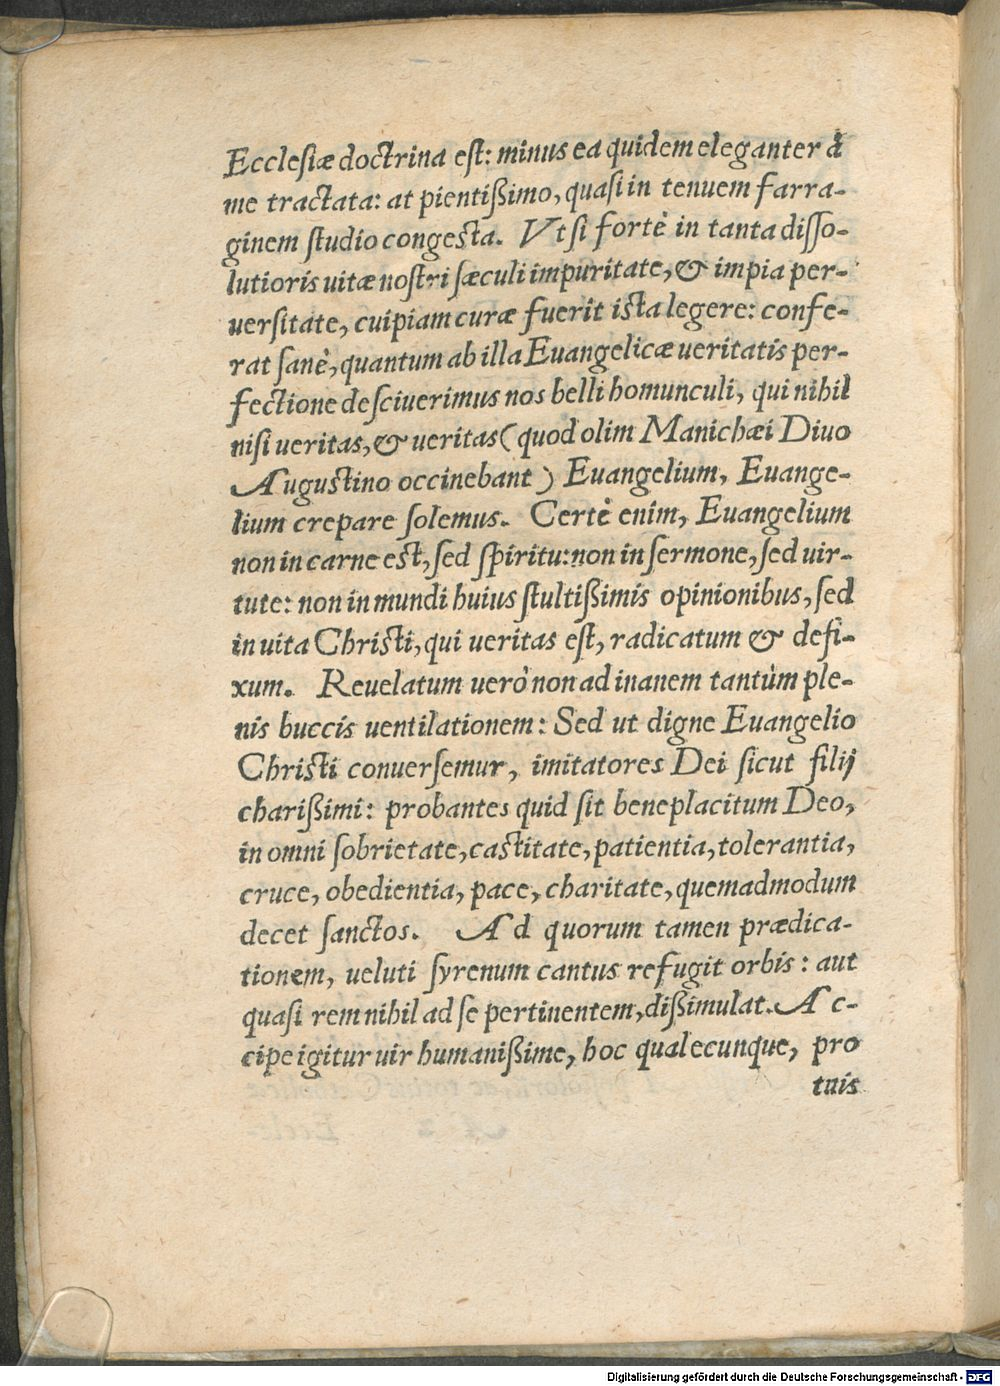 Ecclesiæ doctrina est: minus ea quidem eleganter à
me tractata: at pientißimo, quasi in tenuem farra-
ginem studio congesta. Vt si fortè in tanta disso-
lutioris uitæ nostri sæculi impuritate, & impia per-
uersitate, cuipiam curæ fuerit ista legere: confe-
rat sanè, quantum ab illa Euangelicæ ueritatis per-
fectione desciuerimus nos belli homunculi, qui nihil
nisi ueritas, & ueritas (quod olim Manichæi Diuo
Augustino occinebant) Euangelium, Euange-
lium crepare solemus. Certè enim, Euangelium
non in carne est, sed spiritu: non in sermone, sed uir-
tute: non in mundi huius stultißimis opinionibus, sed
in uita Christi, qui ueritas est, radicatum & defi-
xum. Reuelatum uerò non ad inanem tantùm ple-
nis buccis uentilationem: Sed ut digne Euangelio
Christi conuersemur, imitatores Dei sicut filij
charißimi: probantes quid sit beneplacitum Deo,
in omni sobrietate, castitate, patientia, tolerantia,
cruce, obedientia, pace, charitate, quemadmodum
decet sanctos. Ad quorum tamen prædica-
tionem, ueluti syrenum cantus refugit orbis: aut
quasi rem nihil ad se pertinentem, dißimulat. Ac-
cipe igitur uir humanißime, hoc qualecunque, pro
tuis
Digitalisierung gefördert durch die Deutsche Forschungsgemeinschaft - DFG